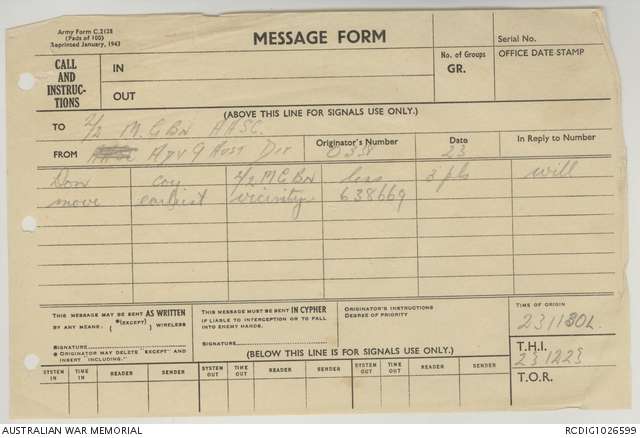 Army Form C.2128
(Pads of 100)
Reprinted January, 1943
MESSAGE FORM
Serial No.
CALL AND INSTRUC-TIONS
IN
OUT
No. of Groups
GR.
OFFICE DATE-STAMP
(ABOVE THIS LINE FOR SIGNALS USE ONLY.)
TO 2/2 M.G Bn AASC.
FROM Adv 9 Aust Div
Originator's Number
O338
Date
23
In Reply to Number
Don coy 2/2 M G Bn less 3 pls will
move earliest vicinity 638669
THIS MESSAGE MAY BE SENT AS WRITTEN
BY ANY MEANS. *(EXCEPT) WIRELESS
SIGNATURE
* ORIGINATOR MAY DELETE "EXCEPT" AND INSERT "INCLUDING."
THIS MESSAGE MUST BE SENT IN CYPHER
IF LIABLE TO INTERCEPTION OR TO FALL INTO ENEMY HANDS.
SIGNATURE
ORIGINATOR'S INSTRUCTIONS
DEGREE OF PRIORITY
TIME OF ORIGIN
231130L
(BELOW THIS LINE IS FOR SIGNALS USE ONLY.)
T.H.I.
231223
T.O.R.
SYSTEM IN
TIME IN
READER
SENDER
SYSTEM OUT
TIME OUT
READER
SENDER
SYSTEM OUT
TIME OUT
READER
SENDER
AUSTRALIAN WAR MEMORIAL
RCDIG1026599